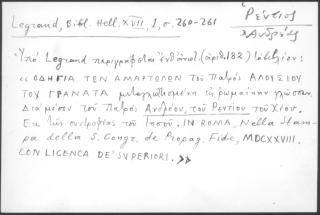 Legrand, Bibl. Hell. XVII, 1, σ. 260-261
Ρέντιος
Ἀνδρέας
Ὑπό Legrand περιγράφεται ἐνθ' ἀνωτ. (ἀριθ. 182) τό βιβλίον:
«ΟΔΗΓΙΑ ΤΕΝ ΑΜΑΡΤΟΛΟΝ τοῦ Πατρός ΑΛΟΥΣΙΟΥ
ΤΟΥ ΓΡΑΝΑΤΑ μεταγλωττισμένη εἰς ρωμαίικην γλῶσσαν
Διά μέσου τοῦ Πατρός Ἀνδρέου, τοῦ Ρεντίου τοῦ Χίου.
Ἐκ τῆς συντροφίας τοῦ Ἰησοῦ. IN ROMA, Nella stam-
pa della S. Congr. de Propag. Fide, MDCXXVIII.
CON LICENCA DE' SUPERIORI.»